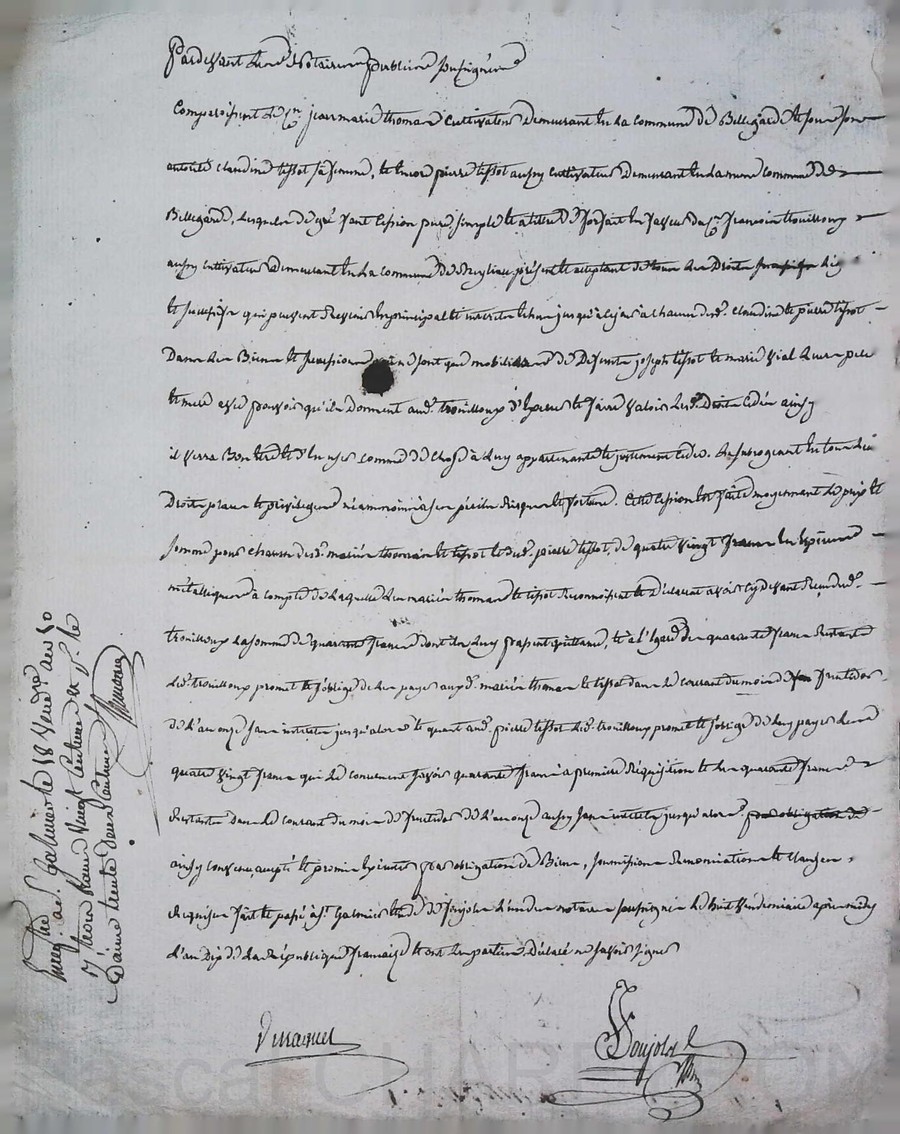 Pardevant les Notaires publics soussignés
Comparoissent le Cn. jean marie thomas Cultivateur Demeurant en la commune de Bellegarde et sous son
autorité claudine tissot sa femme, et encor pierre tissot aussy cultivateur demeurant en la même commune de
Bellegarde, lesquels de gré font cession pure, simple et à titre de forfait en faveur du Cn. francois trouilloux
aussy cultivateur demeurant en la commune de présent et acceptant de tous les Droits
et qui peuvent en principal et interets echus jusqu'à ce jour à chacun desd. claudine et pierre tissot
Dans les Biens et successions ne sont que mobiliaires de Defunts joseph tissot et marie vial leurs pere
et mere avec pouvoir qu'ils Donnent aud. trouilloux d'exercer et faire valoir lesd. Droits cedés ainsy
il verra Bon etre et d'en user comme de chose à luy appartenante et justement cedée. le subrogeant en tous leurs
Droits place et privileges néanmoins à ses perils Risques et fortune. Cette cession est faite moyennant le prix et
somme pour chacun desd. mariés thomas et tissot et dud. pierre tissot, de quatre vingt francs en especes
métalliques à compte de laquelle les mariés thomas et tissot reconnoissent et declarent avoir cy devant Reçu dud.
trouilloux la somme de quarante francs dont ils luy passent quittance, et à l'égard des quarante francs Restants
led. trouilloux promet et s'oblige de les payer auxd. mariés thomas et tissot dans le courant du mois de fructidor
de l'an onze sans interets jusqu'alors et quant aud. pierre tissot led. trouilloux promet et s'oblige de luy payer lesd.
quatre vingt francs qui luy conviennent savoir quarante francs à premiere Réquisition et les quarante francs
Restants dans le courant du mois de fructidor de l'an onze aussy sans interets jusqu'alors. par obligation de
ainsy convenu, accepté et promis executer par obligation de Biens, soumissions Renonciations et clauses
Requises fait et passé à St. Galmier etude de Poujolat l'un des notaires soussignés le huit Vendemiaire après midy
l'an Dix de la République francaise et ont les parties Déclaré ne savoir signer
Poujolat
Enregistré à St. Galmier le 18 Vendre. an 10
Reçu francs vingt centimes et pr. le
Dixme trente deux centimes